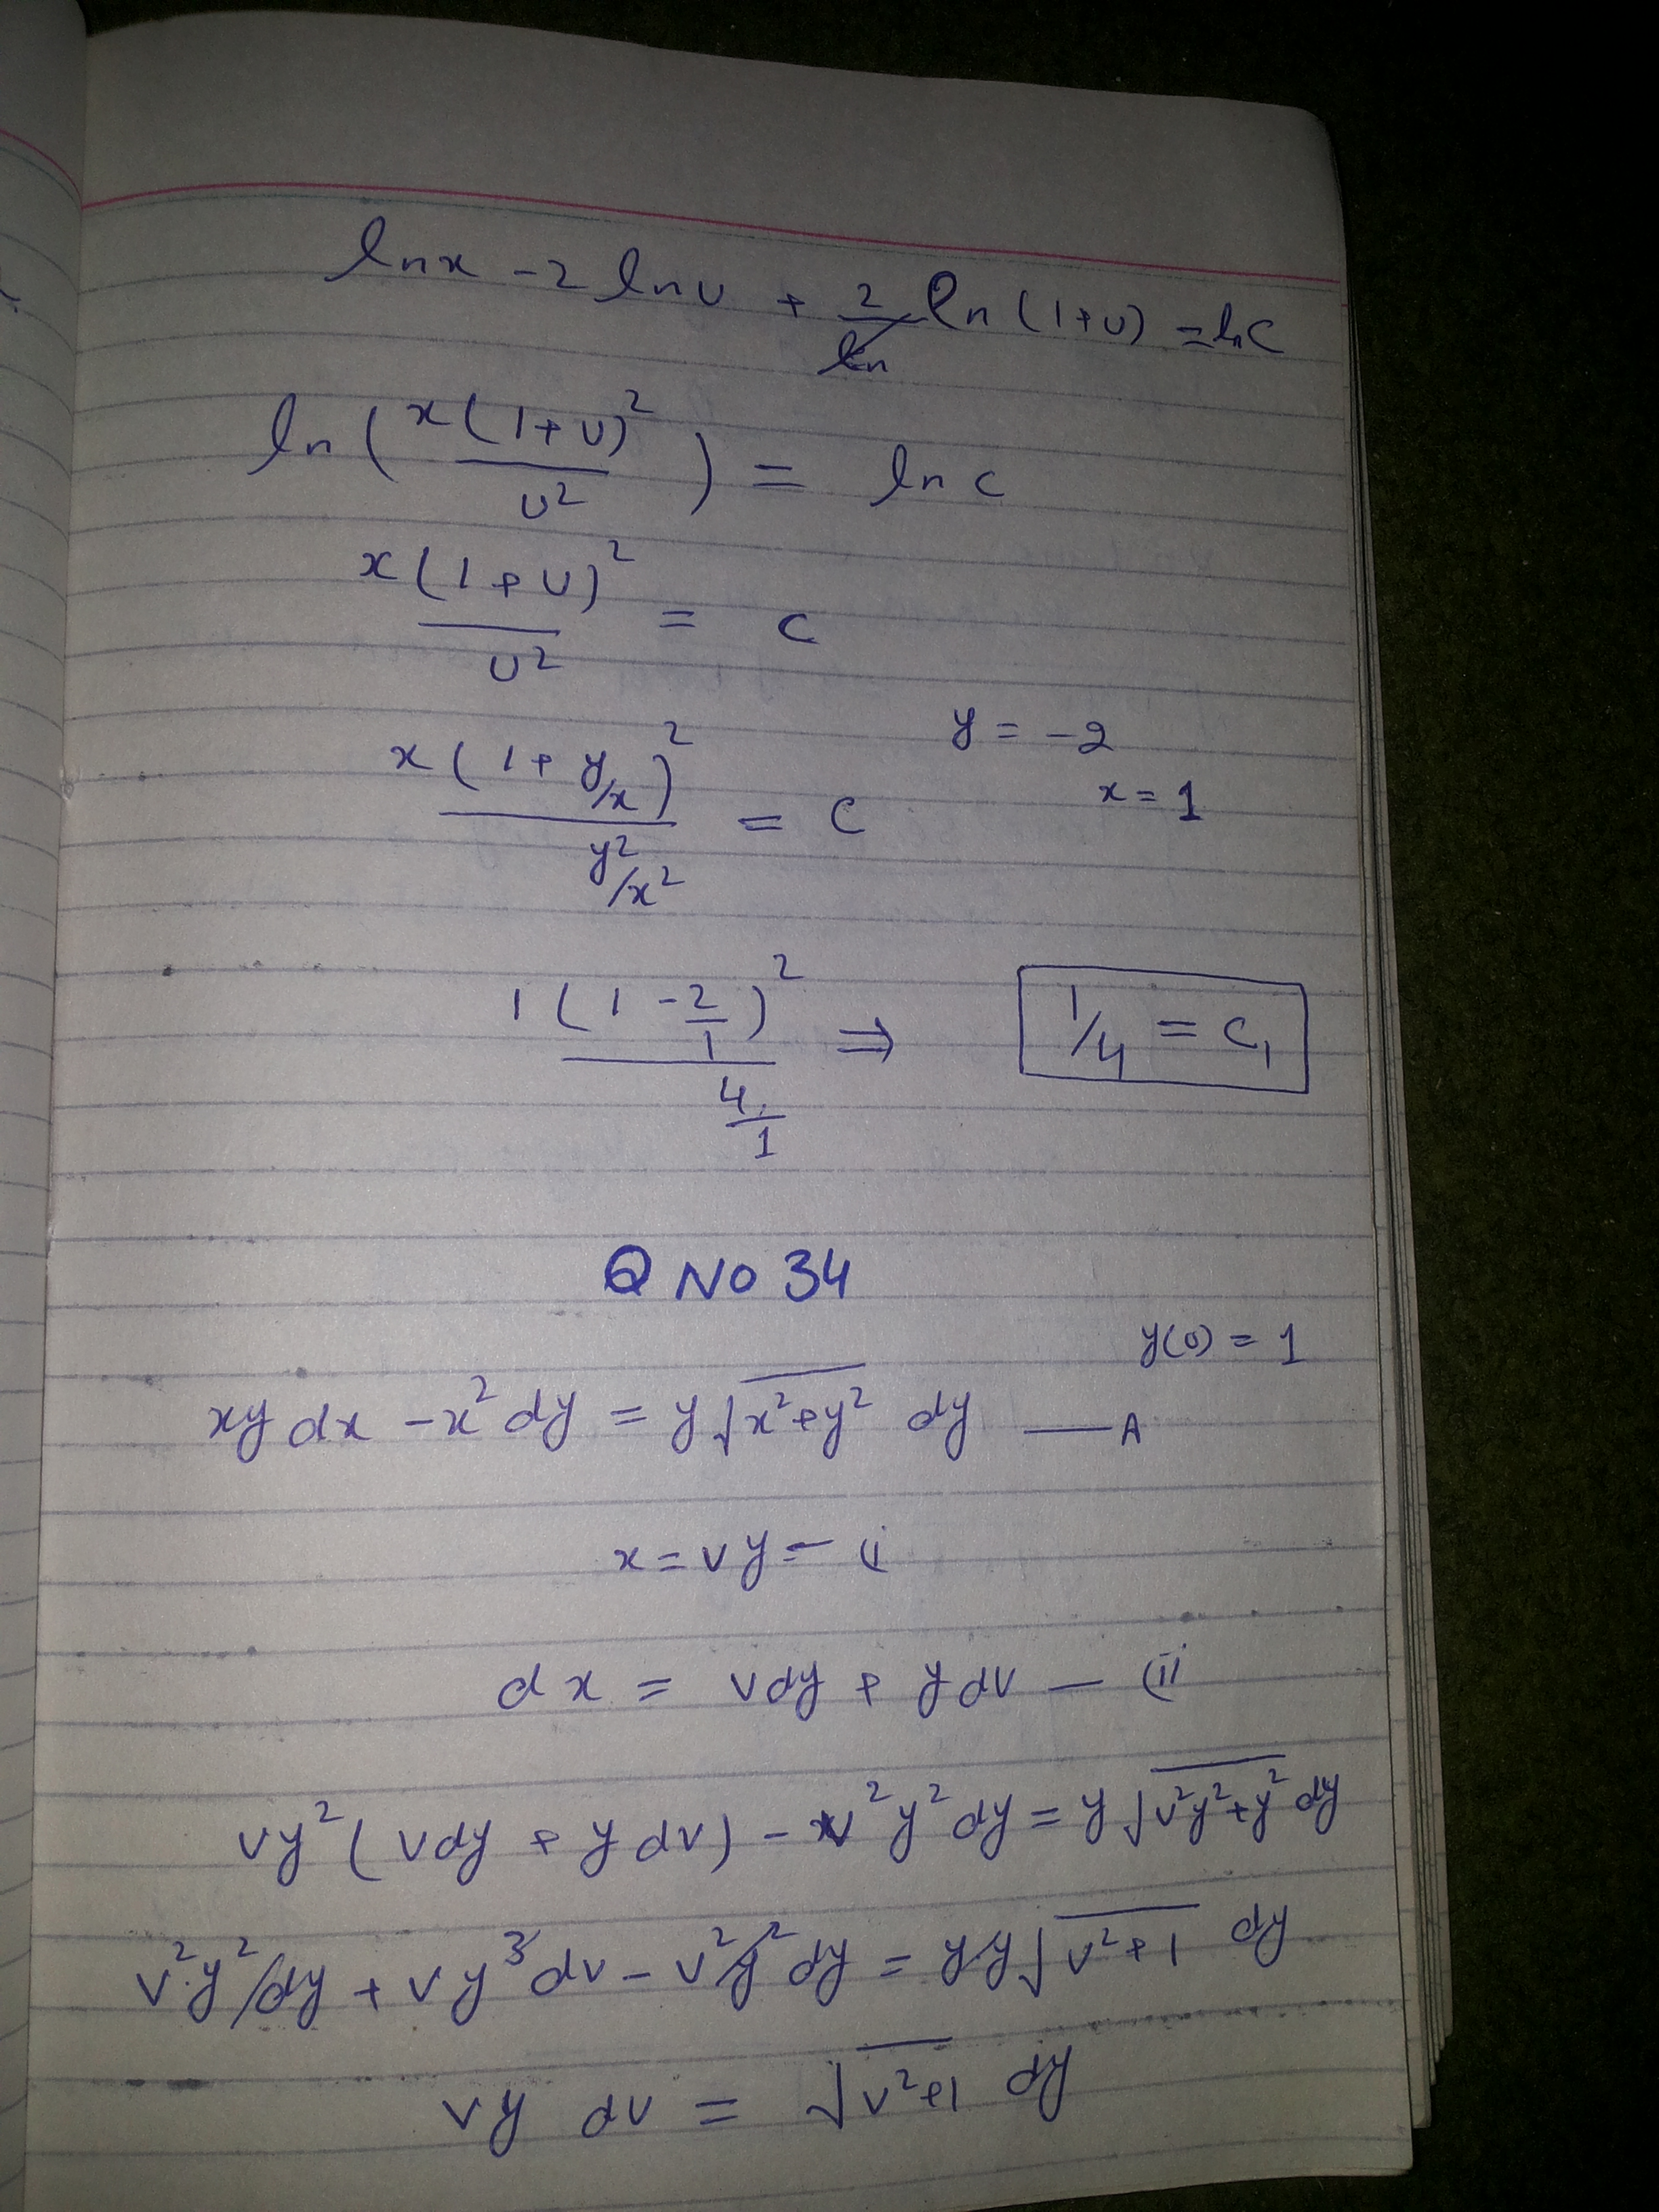 lnx - 2 lnu + 2/ln ln (1+u) = lnC
ln ( x(1+u)² / u² ) = ln c
x(1+u)² / u² = c
y = -2
x = 1
x(1 + y/x)² / y²/x² = c
1(1 - 2/1)² / 4/1 ⇒ 1/4 = c₁
Q NO 34
y(0) = 1
xy dx - x² dy = y√x²+y² dy — A
x = vy — (i
dx = vdy + ydv — (ii
vy² (vdy + y dv) - v²y² dy = y√v²y²+y² dy
v²y² dy + vy³ dv - v²y² dy = y y√v²+1 dy
vy dv = √v²+1 dy